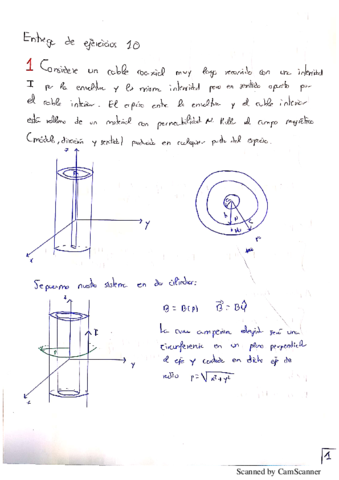 Entrega de ejercicios 10
1 Considere un cable coaxial muy largo recorrido con una intensidad
I por la envoltura y la misma intensidad pero en sentido opuesto por
el cable interior. El espacio entre la envoltura y el cable interior
está relleno de un material con permeabilidad μ. Halle el campo magnético
(módulo, dirección y sentido) producido en cualquier parte del espacio.
y
Separamos nuestro sistema en dos cilindros:
B = B(ρ)
La curva amperiana elegida será una
circunferencia en un plano perpendicular
al eje y centrada en dicho eje de
radio ρ = √x²+y²
y
1
Scanned by CamScanner